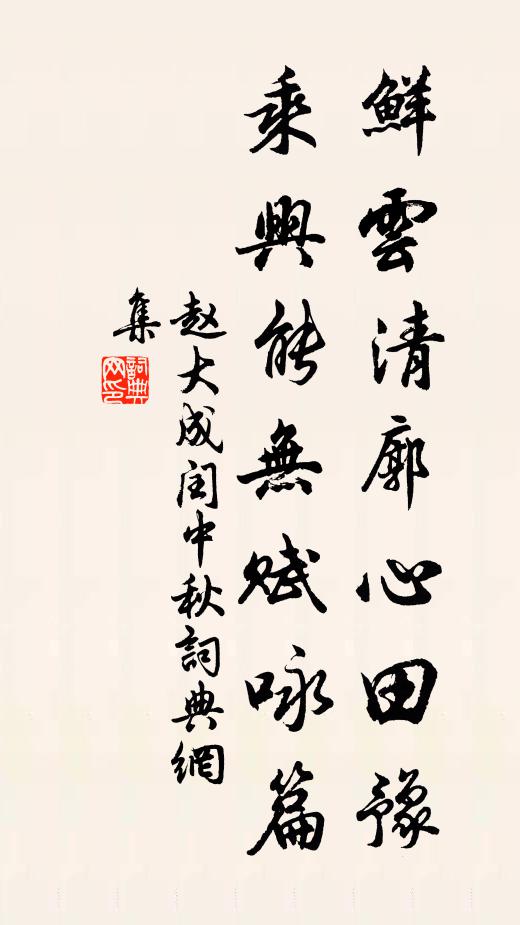 鮮雲清廓心田豫
乘興能無賦咏篇
赵大成闰中秋詞典網
集
詞典
网印